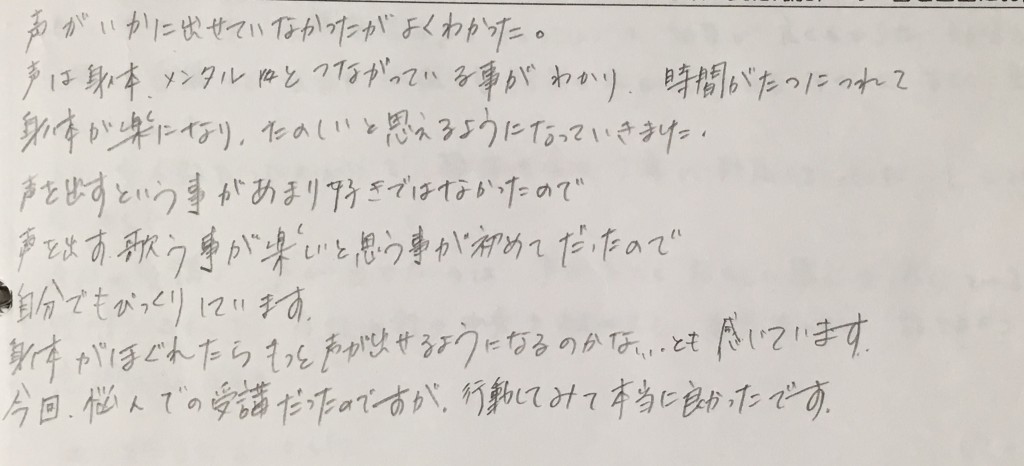 声がいかに出せていなかったがよくわかった。
声は身体、メンタル体とつながっている事がわかり、時間がたつにつれて
身体が楽になり、たのしいと思えるようになっていきました。
声を出すという事があまり好きではなかったので
声を出す、歌う事が楽しいと思う事が初めてだったので
自分でもびっくりしています。
身体がほぐれたらもっと声が出せるようになるのかな…とも感じています。
今回、悩んでの受講だったのですが、行動してみて本当に良かったです。